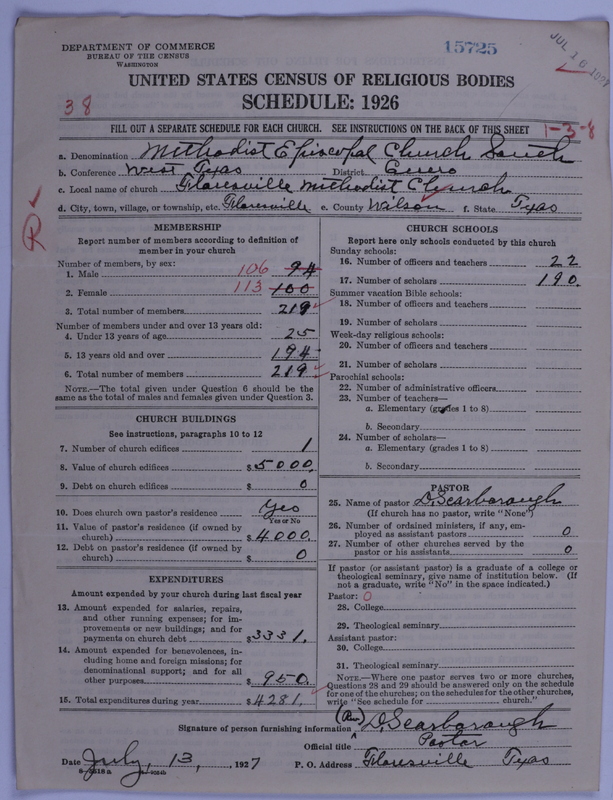 DEPARTMENT OF COMMERCE
BUREAU OF THE CENSUS
WASHINGTON
15725
JUL 16 1927
UNITED STATES CENSUS OF RELIGIOUS BODIES
38
SCHEDULE: 1926
FILL OUT A SEPARATE SCHEDULE FOR EACH CHURCH. SEE INSTRUCTIONS ON THE BACK OF THIS SHEET
1-3-8
a. Denomination Methodist Episcopal Church South
b. Conference West Texas District Cuero
c. Local name of church Floresville Methodist Church
d. City, town, village, or township, etc. Floresville e. County Wilson f. State Texas
R
MEMBERSHIP
Report number of members according to definition of
member in your church
Number of members, by sex:
1. Male 106 94
2. Female 113 100
3. Total number of members 219
Number of members under and over 13 years old:
4. Under 13 years of age 25
5. 13 years old and over 194
6. Total number of members 219
NOTE.—The total given under Question 6 should be the
same as the total of males and females given under Question 3.
CHURCH BUILDINGS
See instructions, paragraphs 10 to 12
7. Number of church edifices 1
8. Value of church edifices $5000.
9. Debt on church edifices $ 0
10. Does church own pastor's residence Yes
Yes or No
11. Value of pastor's residence (if owned by
church) $4000.
12. Debt on pastor's residence (if owned by
church) $ 0
EXPENDITURES
Amount expended by your church during last fiscal year
13. Amount expended for salaries, repairs,
and other running expenses; for im-
provements or new buildings; and for
payments on church debt $3331.
14. Amount expended for benevolences, in-
cluding home and foreign missions; for
denominational support; and for all
other purposes $ 950.
15. Total expenditures during year $4281.
CHURCH SCHOOLS
Report here only schools conducted by this church
Sunday schools:
16. Number of officers and teachers 22
17. Number of scholars 190.
Summer vacation Bible schools:
18. Number of officers and teachers
19. Number of scholars
Week-day religious schools:
20. Number of officers and teachers
21. Number of scholars
Parochial schools:
22. Number of administrative officers
23. Number of teachers—
a. Elementary (grades 1 to 8)
b. Secondary
24. Number of scholars—
a. Elementary (grades 1 to 8)
b. Secondary
PASTOR
25. Name of pastor D. Scarborough
(If church has no pastor, write "None")
26. Number of ordained ministers, if any, em-
ployed as assistant pastors 0
27. Number of other churches served by the
pastor or his assistants 0
If pastor (or assistant pastor) is a graduate of a college or
theological seminary, give name of institution below. (If
not a graduate, write "No" in the space indicated.)
Pastor: 0
28. College
29. Theological seminary
Assistant pastor:
30. College
31. Theological seminary
NOTE.—Where one pastor serves two or more churches,
Questions 28 and 29 should be answered only on the schedule
for one of the churches; on the schedules for the other churches,
write "See schedule for church."
Signature of person furnishing information (Rev) D. Scarborough
Official title Pastor
Date July, 13, 1927 P. O. Address Floresville Texas